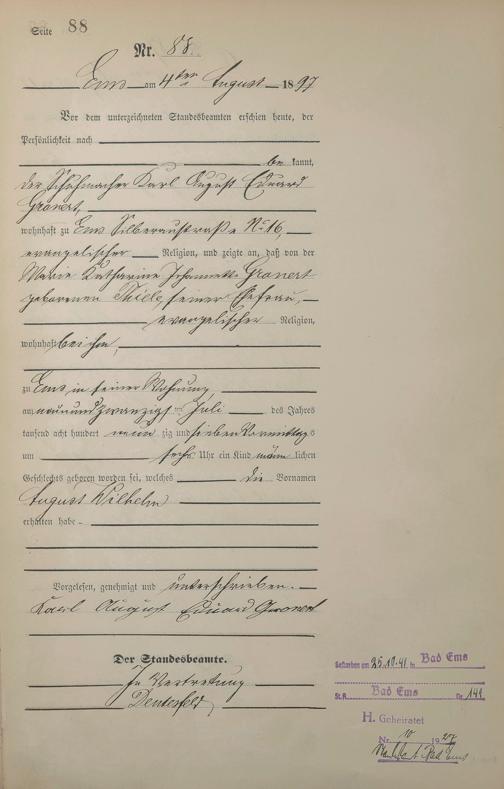 Seite 88
Nr. 88.
Ems am 4ten August 1897
Vor dem unterzeichneten Standesbeamten erschien heute, der
Persönlichkeit nach
bekannt,
der Schuhmacher Karl August Eduard
Gronert,
wohnhaft zu Ems Silberaustraße No 16
evangelischer Religion, und zeigte an, daß von der
Marie Katharine Johannette Gronert
geborenen Thiele, seiner Ehefrau,
evangelischer Religion,
wohnhaft bei ihm,
zu Ems in seiner Wohnung
am neunundzwanzigst Juli des Jahres
tausend acht hundert neunzig und sieben Vormittags
um sechs Uhr ein Kind männlichen
Geschlechts geboren worden sei, welches die Vornamen
August Wilhelm
erhalten habe
Vorgelesen, genehmigt und unterschrieben.
Karl August Eduard Gronert
Der Standesbeamte.
In Vertretung
Gestorben am 25.10.41 in Bad Ems
St.A. Bad Ems Nr. 141
H. Geheiratet
Nr. 10 1927
Standesamt Bad Ems